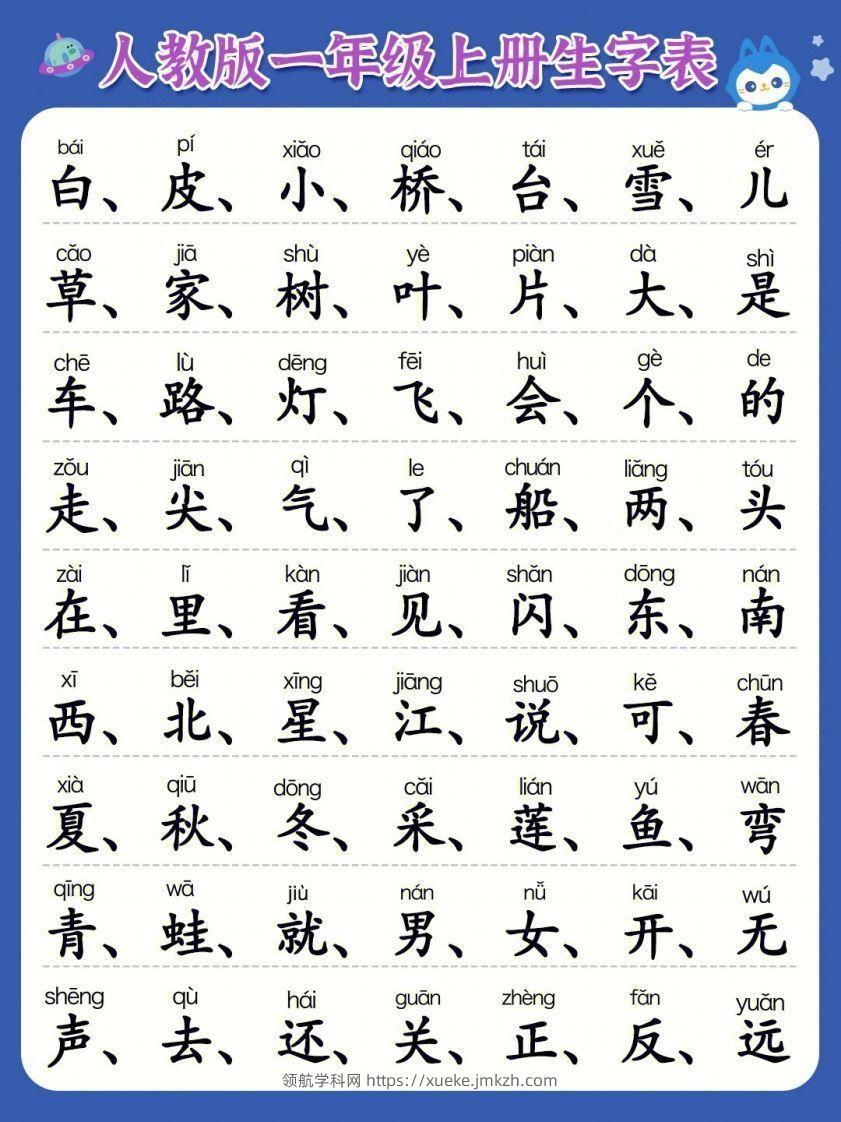 人教版一年级上册生字表
bái pí xiǎo qiáo tái xuě ér
白、皮、小、桥、台、雪、儿
cǎo jiā shù yè piàn dà shì
草、家、树、叶、片、大、是
chē lù dēng fēi huì gè de
车、路、灯、飞、会、个、的
zǒu jiān qì le chuán liǎng tóu
走、尖、气、了、船、两、头
zài lǐ kàn jiàn shǎn dōng nán
在、里、看、见、闪、东、南
xī běi xīng jiāng shuō kě chūn
西、北、星、江、说、可、春
xià qiū dōng cǎi lián yú wān
夏、秋、冬、采、莲、鱼、弯
qīng wā jiù nán nǚ kāi wú
青、蛙、就、男、女、开、无
shēng qù hái guān zhèng fǎn yuǎn
声、去、还、关、正、反、远
领航学科网 https://xueke.jmkzh.com